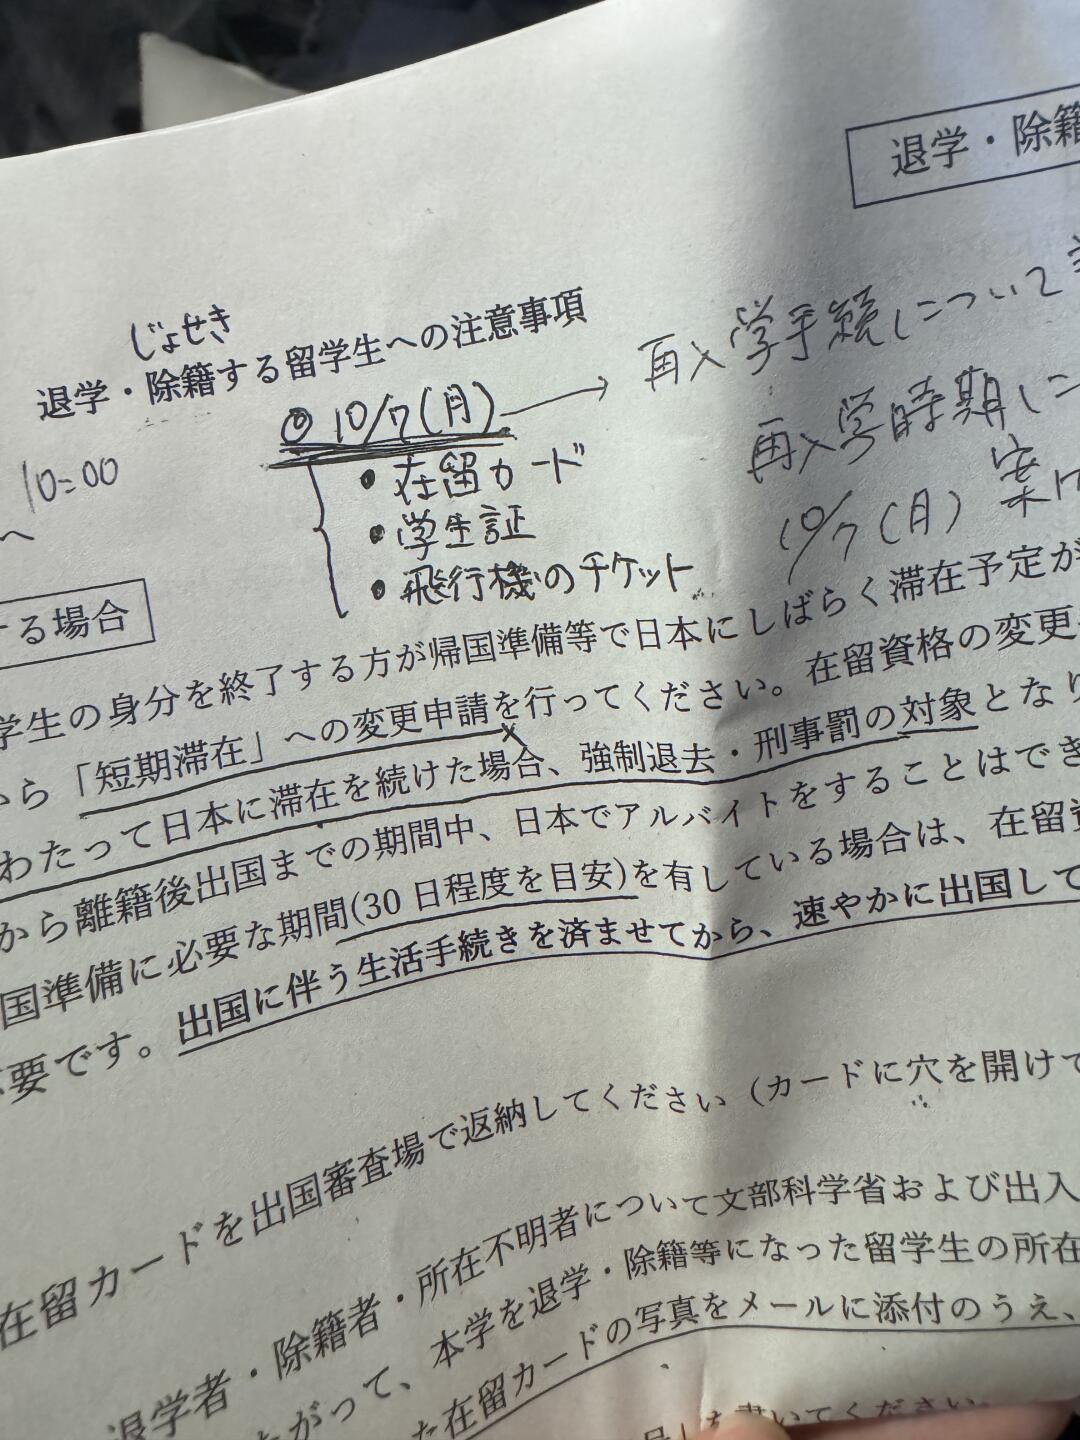 退学・除籍
じょせき
退学・除籍する留学生への注意事項
◎ 10/7(月) → 再入学手続について
再入学時期に
10/7(月) 案内
10:00
・在留カード
・学生証
・飛行機のチケット
へ
する場合
学生の身分を終了する方が帰国準備等で日本にしばらく滞在予定が
から「短期滞在」への変更申請を行ってください。在留資格の変更
わたって日本に滞在を続けた場合、強制退去・刑事罰の対象となり
から離籍後出国までの期間中、日本でアルバイトをすることはでき
国準備に必要な期間(30日程度を目安)を有している場合は、在留資
必要です。出国に伴う生活手続きを済ませてから、速やかに出国して
在留カードを出国審査場で返納してください（カードに穴を開けて
退学者・除籍者・所在不明者について文部科学省および出入
がって、本学を退学・除籍等になった留学生の所在
た在留カードの写真をメールに添付のうえ、
書いてください。